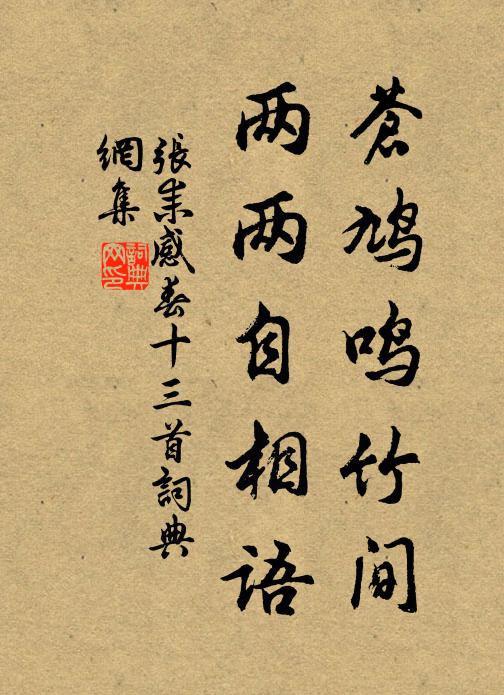 苍鸠鸣竹间
两两自相语
張耒感春十三首詞典
網集
詞典
网印